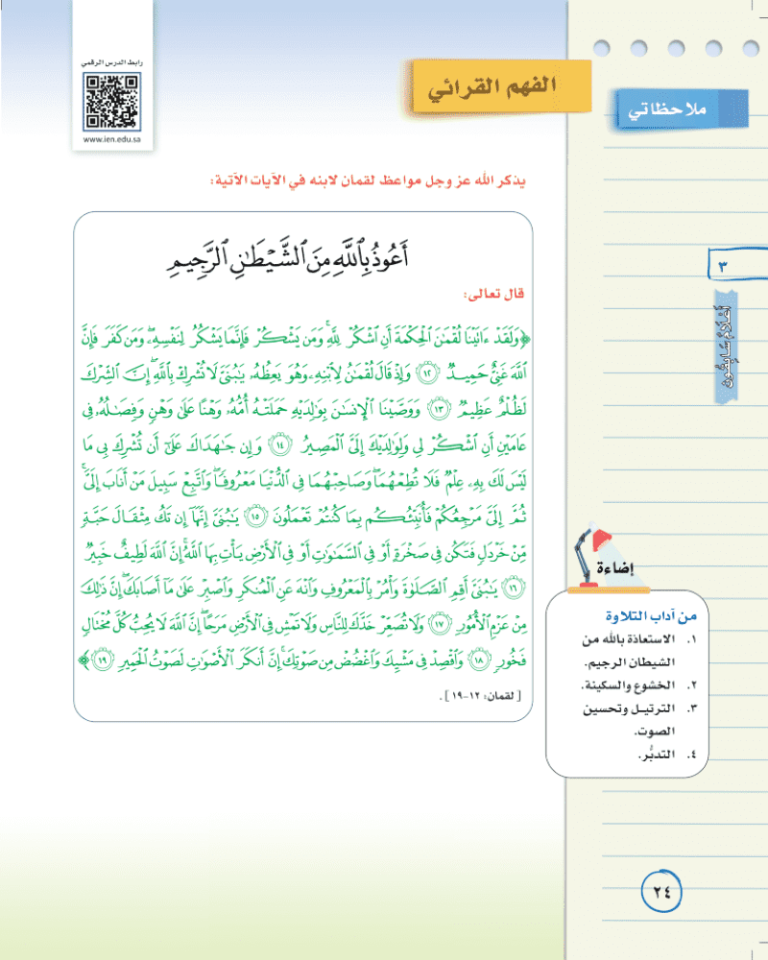 رابط الدرس الرقمي
www.ien.edu.sa
الفهم القرائي
ملاحظاتي
يذكر الله عز وجل مواعظ لقمان لابنه في الآيات الآتية:
أَعُوذُ بِٱللَّهِ مِنَ ٱلشَّيْطَٰنِ ٱلرَّجِيمِ
قال تعالى:
﴿وَلَقَدْ ءَاتَيْنَا لُقْمَٰنَ ٱلْحِكْمَةَ أَنِ ٱشْكُرْ لِلَّهِ ۚ وَمَن يَشْكُرْ فَإِنَّمَا يَشْكُرُ لِنَفْسِهِۦ ۖ وَمَن كَفَرَ فَإِنَّ
ٱللَّهَ غَنِىٌّ حَمِيدٌ ۝١٢ وَإِذْ قَالَ لُقْمَٰنُ لِٱبْنِهِۦ وَهُوَ يَعِظُهُۥ يَٰبُنَىَّ لَا تُشْرِكْ بِٱللَّهِ ۖ إِنَّ ٱلشِّرْكَ
لَظُلْمٌ عَظِيمٌ ۝١٣ وَوَصَّيْنَا ٱلْإِنسَٰنَ بِوَٰلِدَيْهِ حَمَلَتْهُ أُمُّهُۥ وَهْنًا عَلَىٰ وَهْنٍ وَفِصَٰلُهُۥ فِى
عَامَيْنِ أَنِ ٱشْكُرْ لِى وَلِوَٰلِدَيْكَ إِلَىَّ ٱلْمَصِيرُ ۝١٤ وَإِن جَٰهَدَاكَ عَلَىٰٓ أَن تُشْرِكَ بِى مَا
لَيْسَ لَكَ بِهِۦ عِلْمٌ فَلَا تُطِعْهُمَا ۖ وَصَاحِبْهُمَا فِى ٱلدُّنْيَا مَعْرُوفًا ۖ وَٱتَّبِعْ سَبِيلَ مَنْ أَنَابَ إِلَىَّ ۚ
ثُمَّ إِلَىَّ مَرْجِعُكُمْ فَأُنَبِّئُكُم بِمَا كُنتُمْ تَعْمَلُونَ ۝١٥ يَٰبُنَىَّ إِنَّهَآ إِن تَكُ مِثْقَالَ حَبَّةٍ
مِّنْ خَرْدَلٍ فَتَكُن فِى صَخْرَةٍ أَوْ فِى ٱلسَّمَٰوَٰتِ أَوْ فِى ٱلْأَرْضِ يَأْتِ بِهَا ٱللَّهُ ۚ إِنَّ ٱللَّهَ لَطِيفٌ خَبِيرٌ
۝١٦ يَٰبُنَىَّ أَقِمِ ٱلصَّلَوٰةَ وَأْمُرْ بِٱلْمَعْرُوفِ وَٱنْهَ عَنِ ٱلْمُنكَرِ وَٱصْبِرْ عَلَىٰ مَآ أَصَابَكَ ۖ إِنَّ ذَٰلِكَ
مِنْ عَزْمِ ٱلْأُمُورِ ۝١٧ وَلَا تُصَعِّرْ خَدَّكَ لِلنَّاسِ وَلَا تَمْشِ فِى ٱلْأَرْضِ مَرَحًا ۖ إِنَّ ٱللَّهَ لَا يُحِبُّ كُلَّ مُخْتَالٍ
فَخُورٍ ۝١٨ وَٱقْصِدْ فِى مَشْيِكَ وَٱغْضُضْ مِن صَوْتِكَ ۚ إِنَّ أَنكَرَ ٱلْأَصْوَٰتِ لَصَوْتُ ٱلْحَمِيرِ ۝١٩﴾
[لقمان: ١٢-١٩].
٣
أعلام سابقون
إضاءة
من آداب التلاوة
١. الاستعاذة بالله من
الشيطان الرجيم.
٢. الخشوع والسكينة.
٣. الترتيل وتحسين
الصوت.
٤. التدبُّر.
٢٤